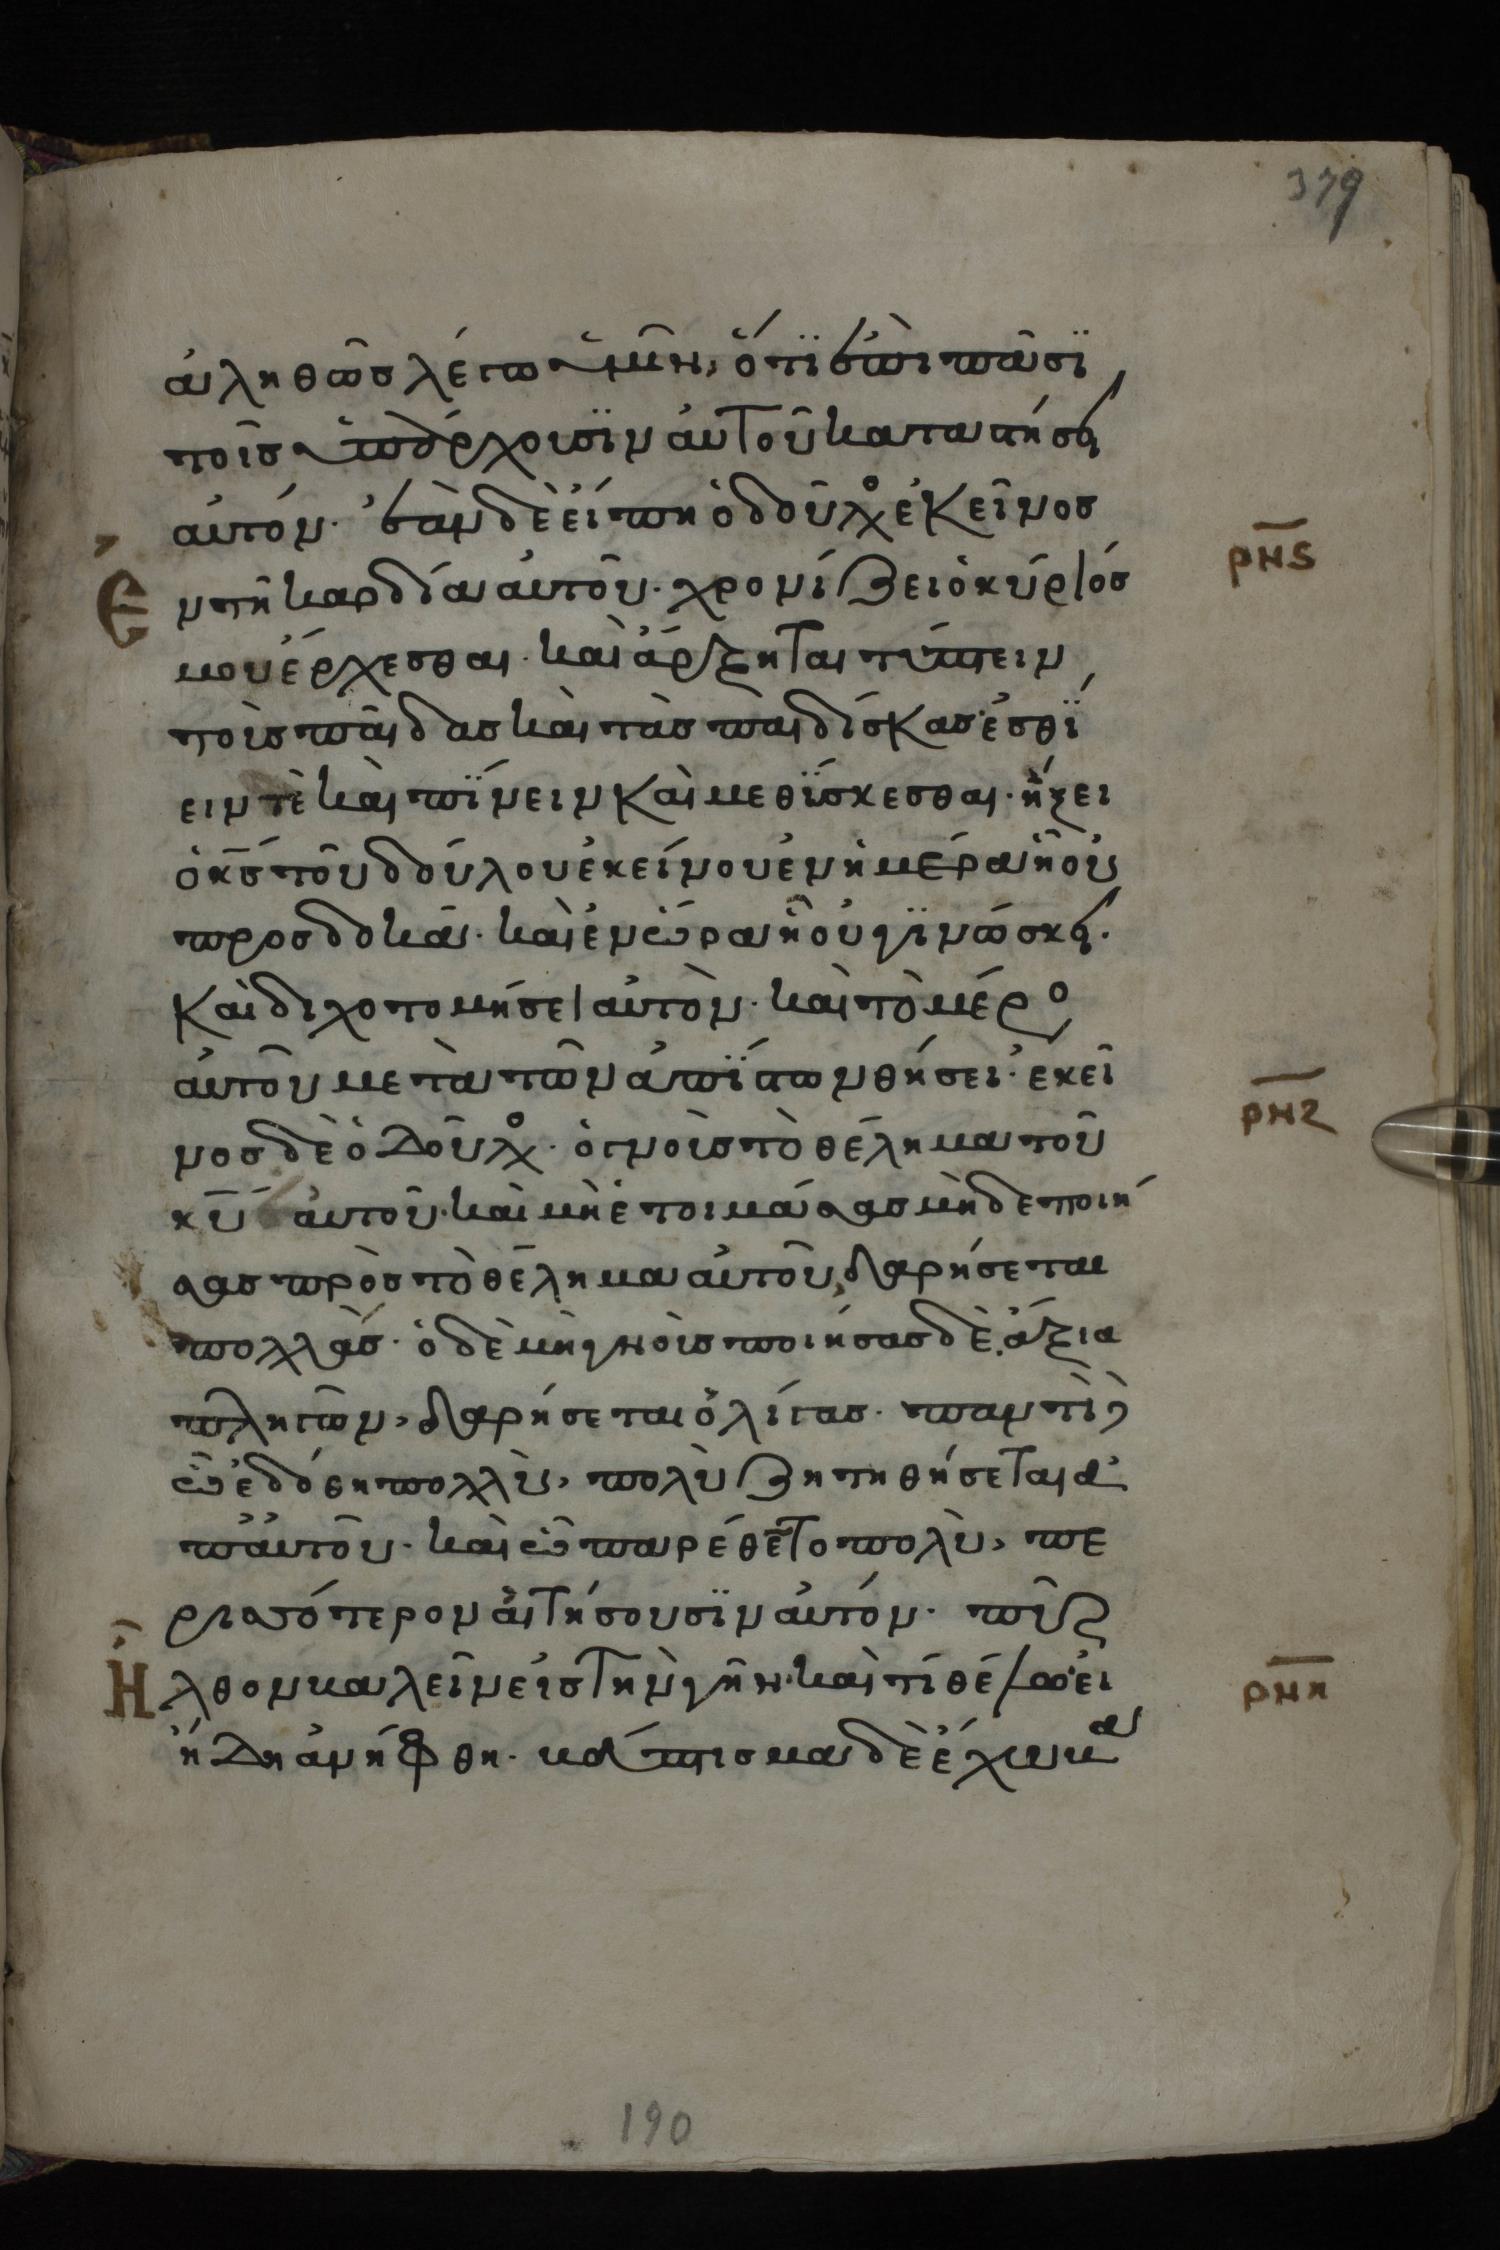 379
ἀληθῶς λέγω ὑμῖν, ὅτϊ ἐπὶ πᾶσϊ
τοῖς ὑπάρχουσϊν αὐτοῦ καταστήσει
αὐτόν. ἐὰν δὲ εἴπη ὁ δοῦλο ἐκεῖνος
Ἐ ντῆ καρδία αὐτοῦ. χρονίζει ὁ κύριός ρνς
μου ἔρχεσθαι. καὶ ἄρξηται τύπτειν
τοὺς παῖδας καὶ τὰς παιδίσκας. ἐσθΐ
ειν τὲ καὶ πΐνειν καὶ μεθΰσκεσθαι. ἥξει
ὁ κς τοῦ δούλου ἐκείνου ἐν ἡμέρα ἧ οὐ
προσδοκᾶ. καὶ ἐν ὥρα ἧ οὐ γϊνώσκει.
καὶ διχοτομήσει αὐτὸν. καὶ τὸ μέρο
αὐτοῦ μετὰ τῶν ἀπΐστων θήσει. ἐκεῖ
νος δὲ ὁ δοῦλο. ὁ γνοὺς τὸ θέλημα τοῦ ρνζ
κυ αὐτοῦ. καὶ μὴ ἑτοιμάσας μὴδε ποιή
σας πρὸς τὸ θέλημα αὐτοῦ, δαρήσεται
πολλάς. ὁ δὲ μὴ γνοὺς ποιήσας δὲ ἄξια
πληγῶν, δαρήσεται ὀλίγας. παντὶ
ὧ ἐδόθη πολλὺ, πολὺ ζητηθήσεται ἀ
π' αὐτοῦ. καὶ ὧ παρέθεντο πολὺ, πε
ρισσότερον αἰτήσουσϊν αὐτόν. πῦρ
Ἦ λθον καλεῖν εἰς τὴν γῆν. καὶ τί θέλω. εἰ ρνη
ἤδη ἀνήφθη. βάπτισμα δὲ ἔχω
190